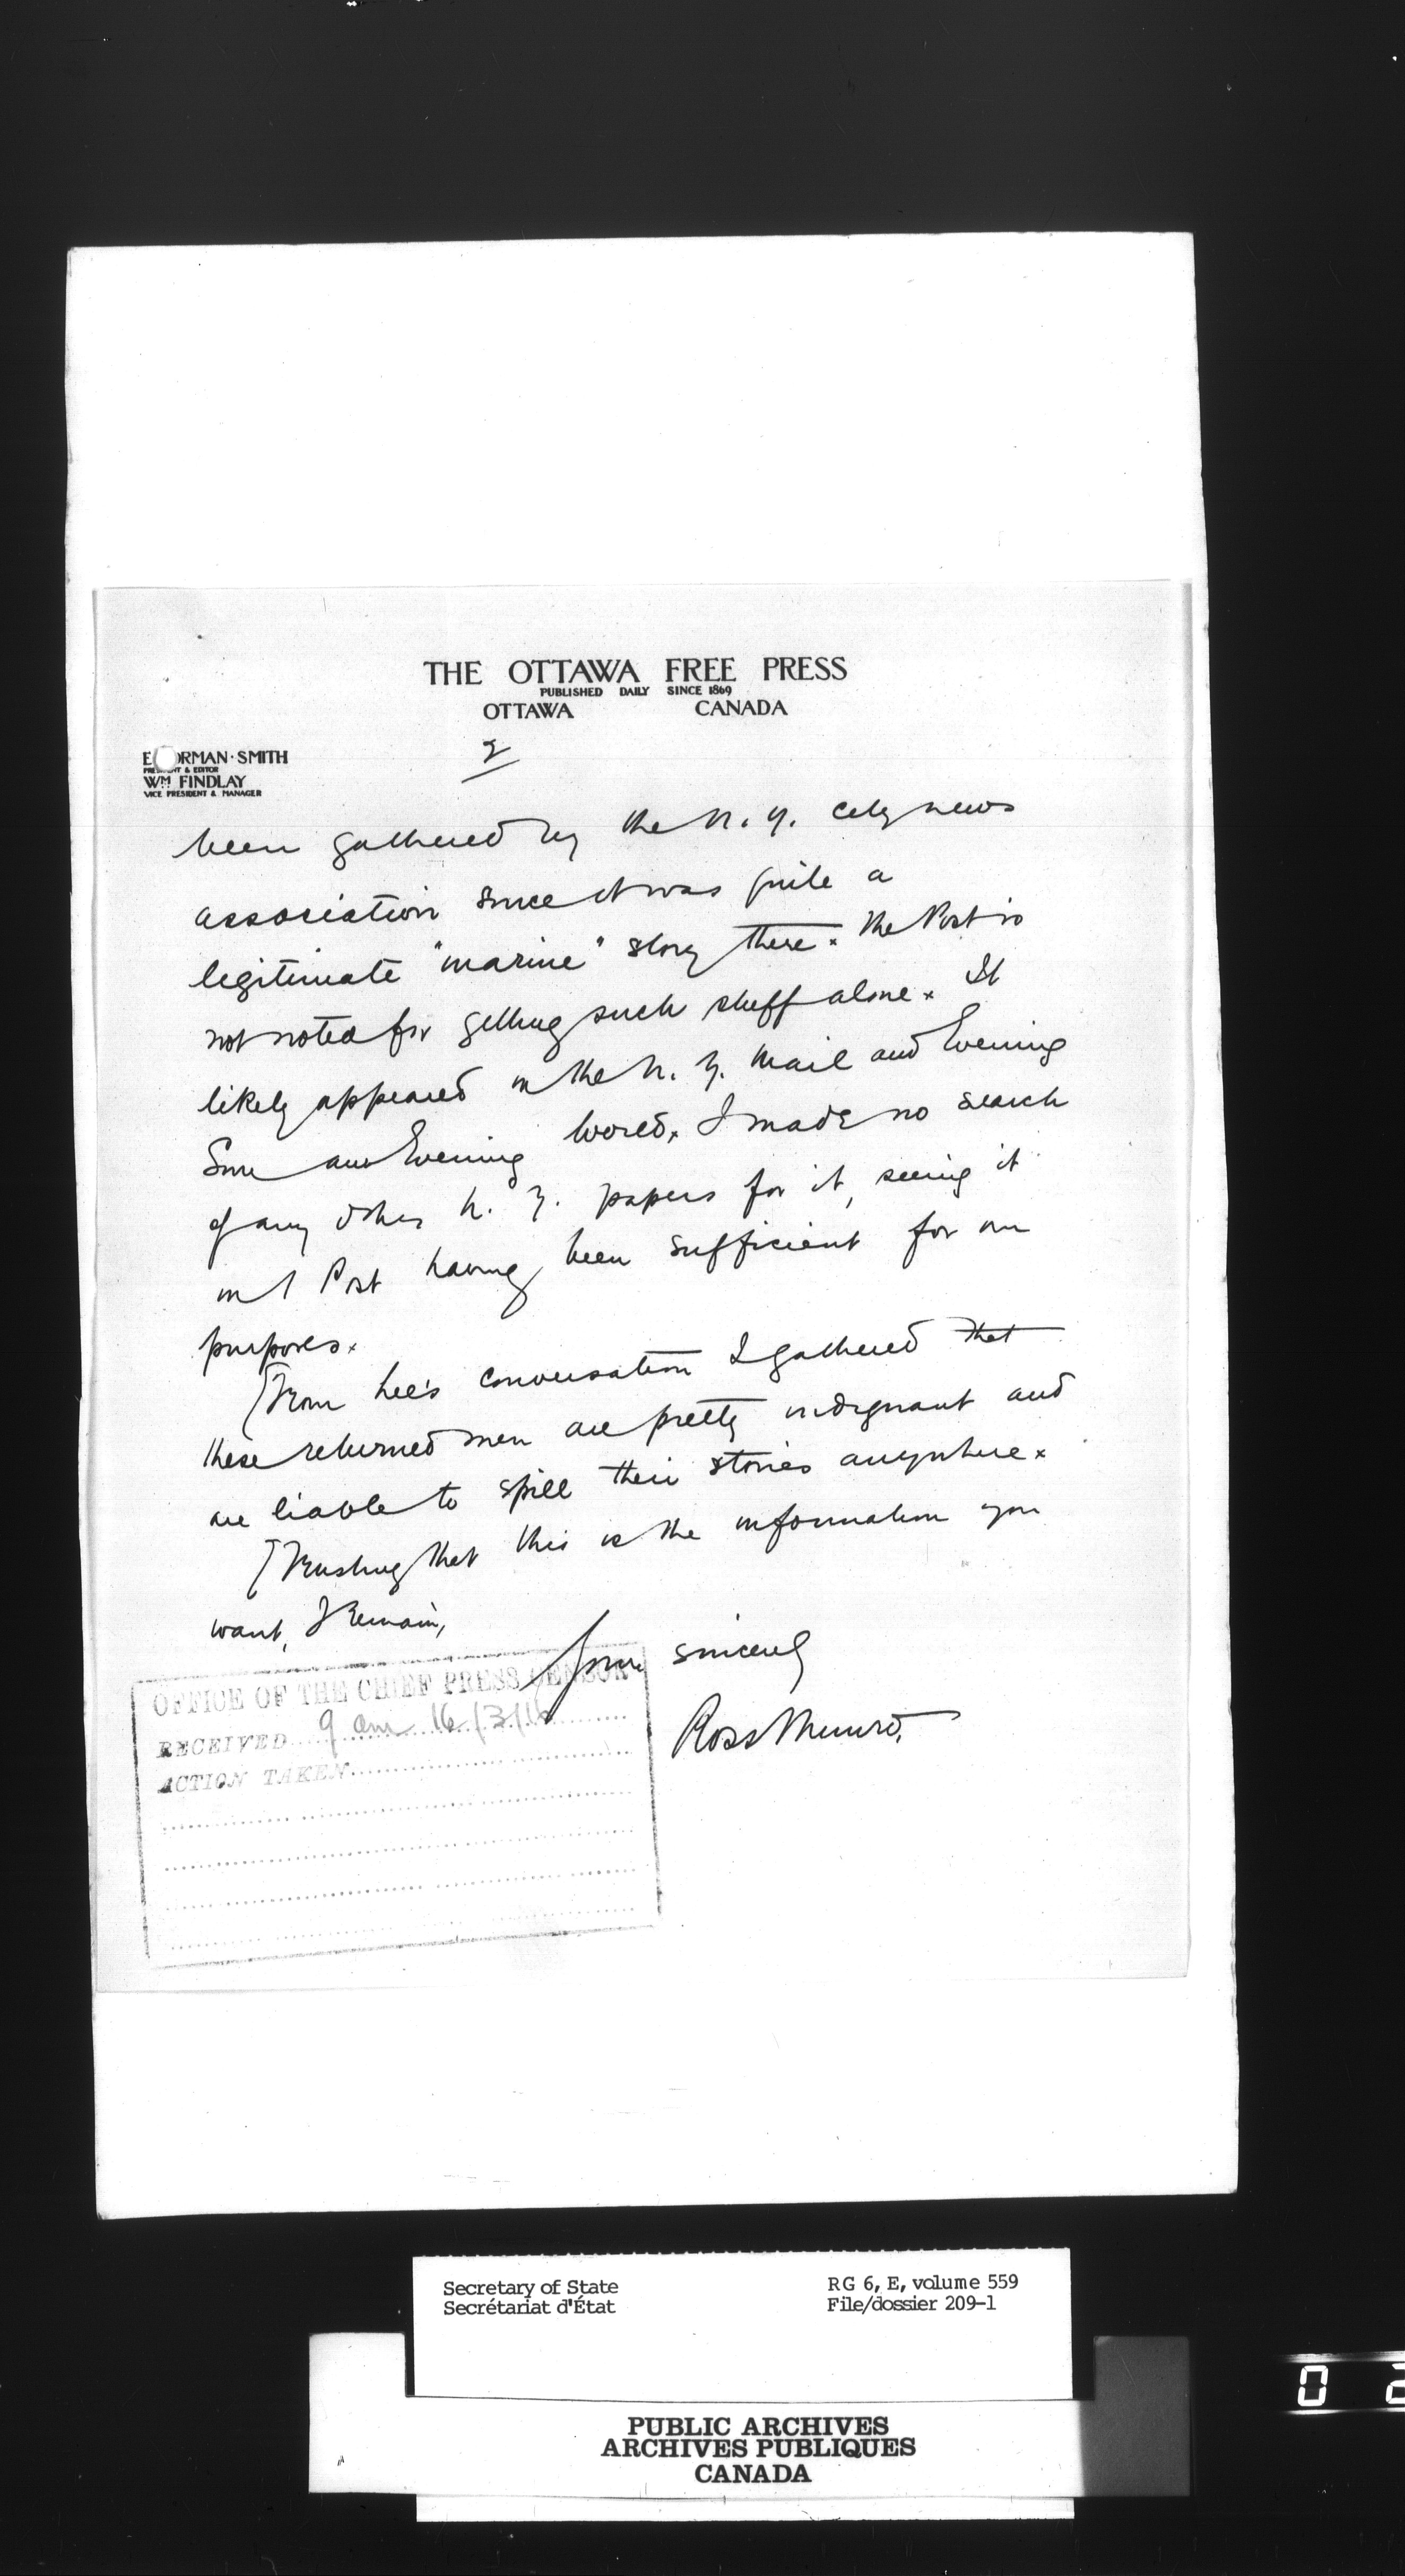 THE OTTAWA FREE PRESS
PUBLISHED DAILY SINCE 1869
OTTAWA CANADA
2
E. NORMAN·SMITH
PRESIDENT & EDITOR
WM FINDLAY
VICE PRESIDENT & MANAGER
been gathered by the N. Y. City news
association since it was quite a
legitimate "marine" story there x The Post is
not noted for getting such stuff alone x It
likely appeared in the N. Y. Mail and Evening
Sun and Evening World x I made no search
of any other N. Y. papers for it, seeing it
in Post having been sufficient for our
purposes x
[From Lee's conversation I gathered that
these returned men are pretty indignant and
are liable to spill their stories anywhere x
[Trusting that this is the information you
want, I remain,
Yours sincerely
Ross Munro.
OFFICE OF THE CHIEF PRESS CENSOR
RECEIVED 9 am 16/3/16
ACTION TAKEN
Secretary of State
Secrétariat d'État
RG 6, E, volume 559
File/dossier 209-1
PUBLIC ARCHIVES
ARCHIVES PUBLIQUES
CANADA
0 2